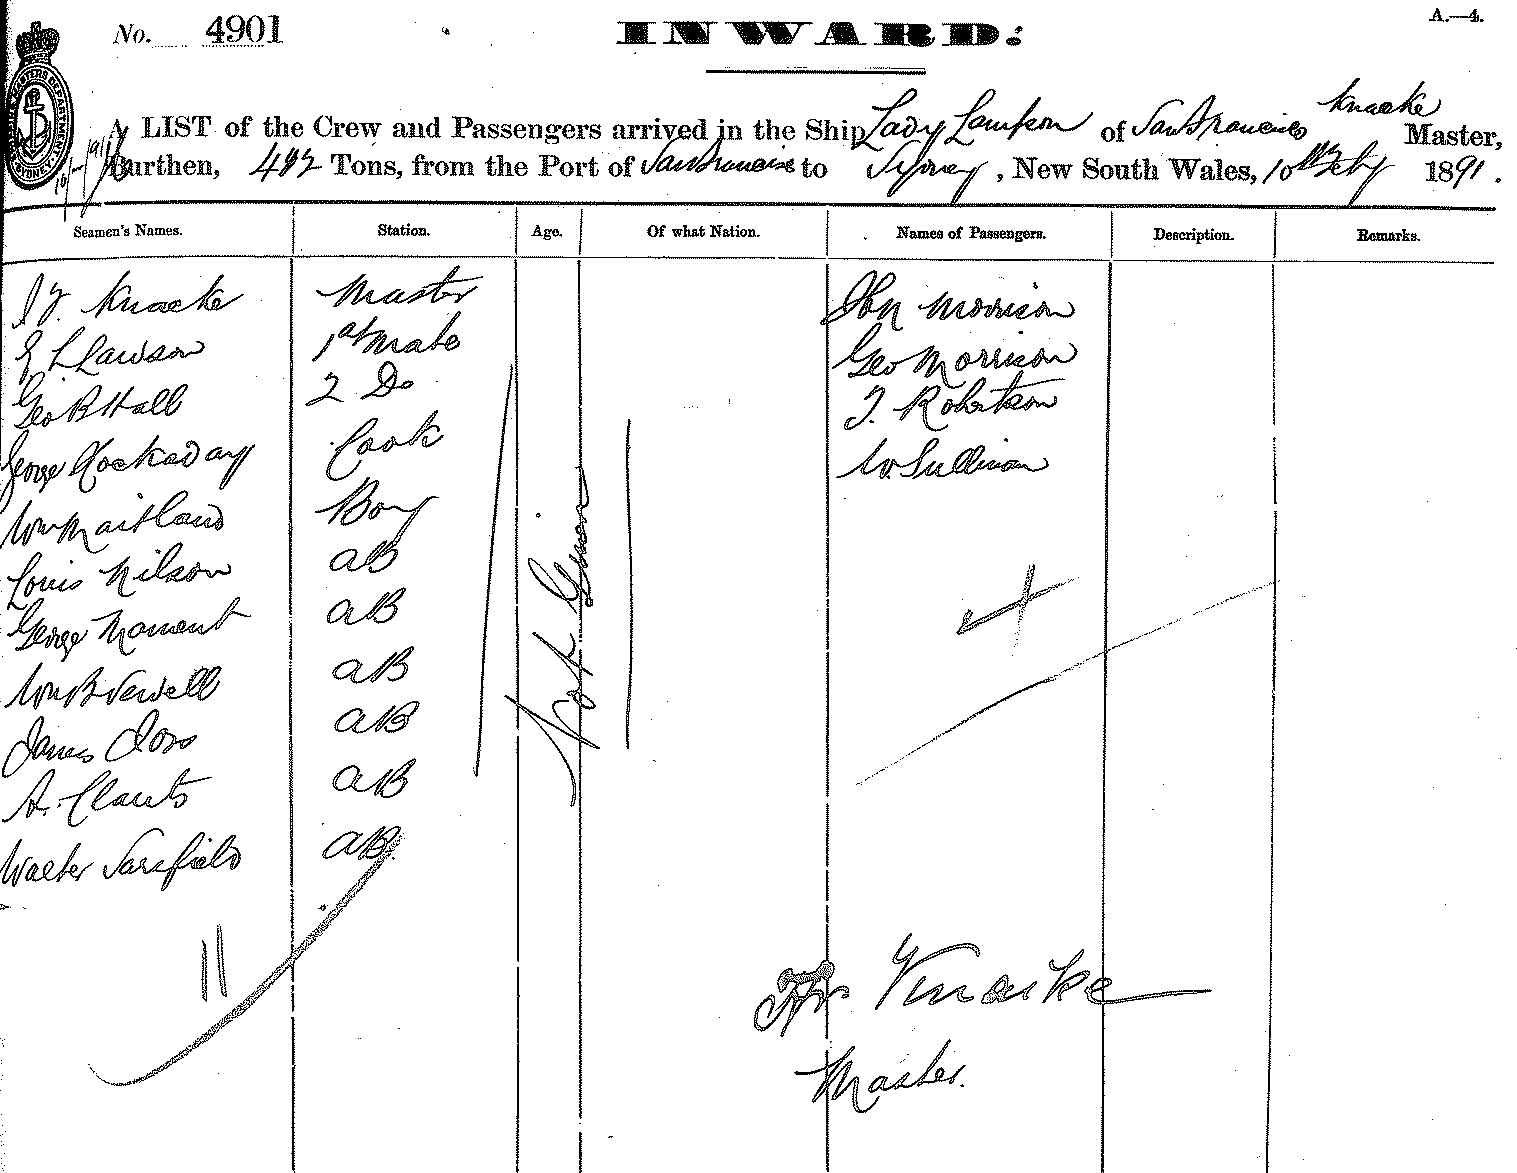 No. 4901
INWARD:
A.—4.
A LIST of the Crew and Passengers arrived in the Ship Lady Lampson of San Francisco Knacke Master,
Burthen, 492 Tons, from the Port of San Francisco to Sydney, New South Wales, 10th Feby 1891.
Seamen's Names. Station. Age. Of what Nation. Names of Passengers. Description. Remarks.
Knacke Master Jhn Morrison
E L Lawson 1st Mate Geo Morrison
Geo B Hall 2 Do J. Robertson
George Hockaday Cook W. Sullivan
Wm Maitland Boy
Louis Nilson AB
George Moment AB
Wm B Newell AB
James Ross AB
A. Clauts AB
Walter Sarsfield AB
Not Given
11
Knacke
Master.